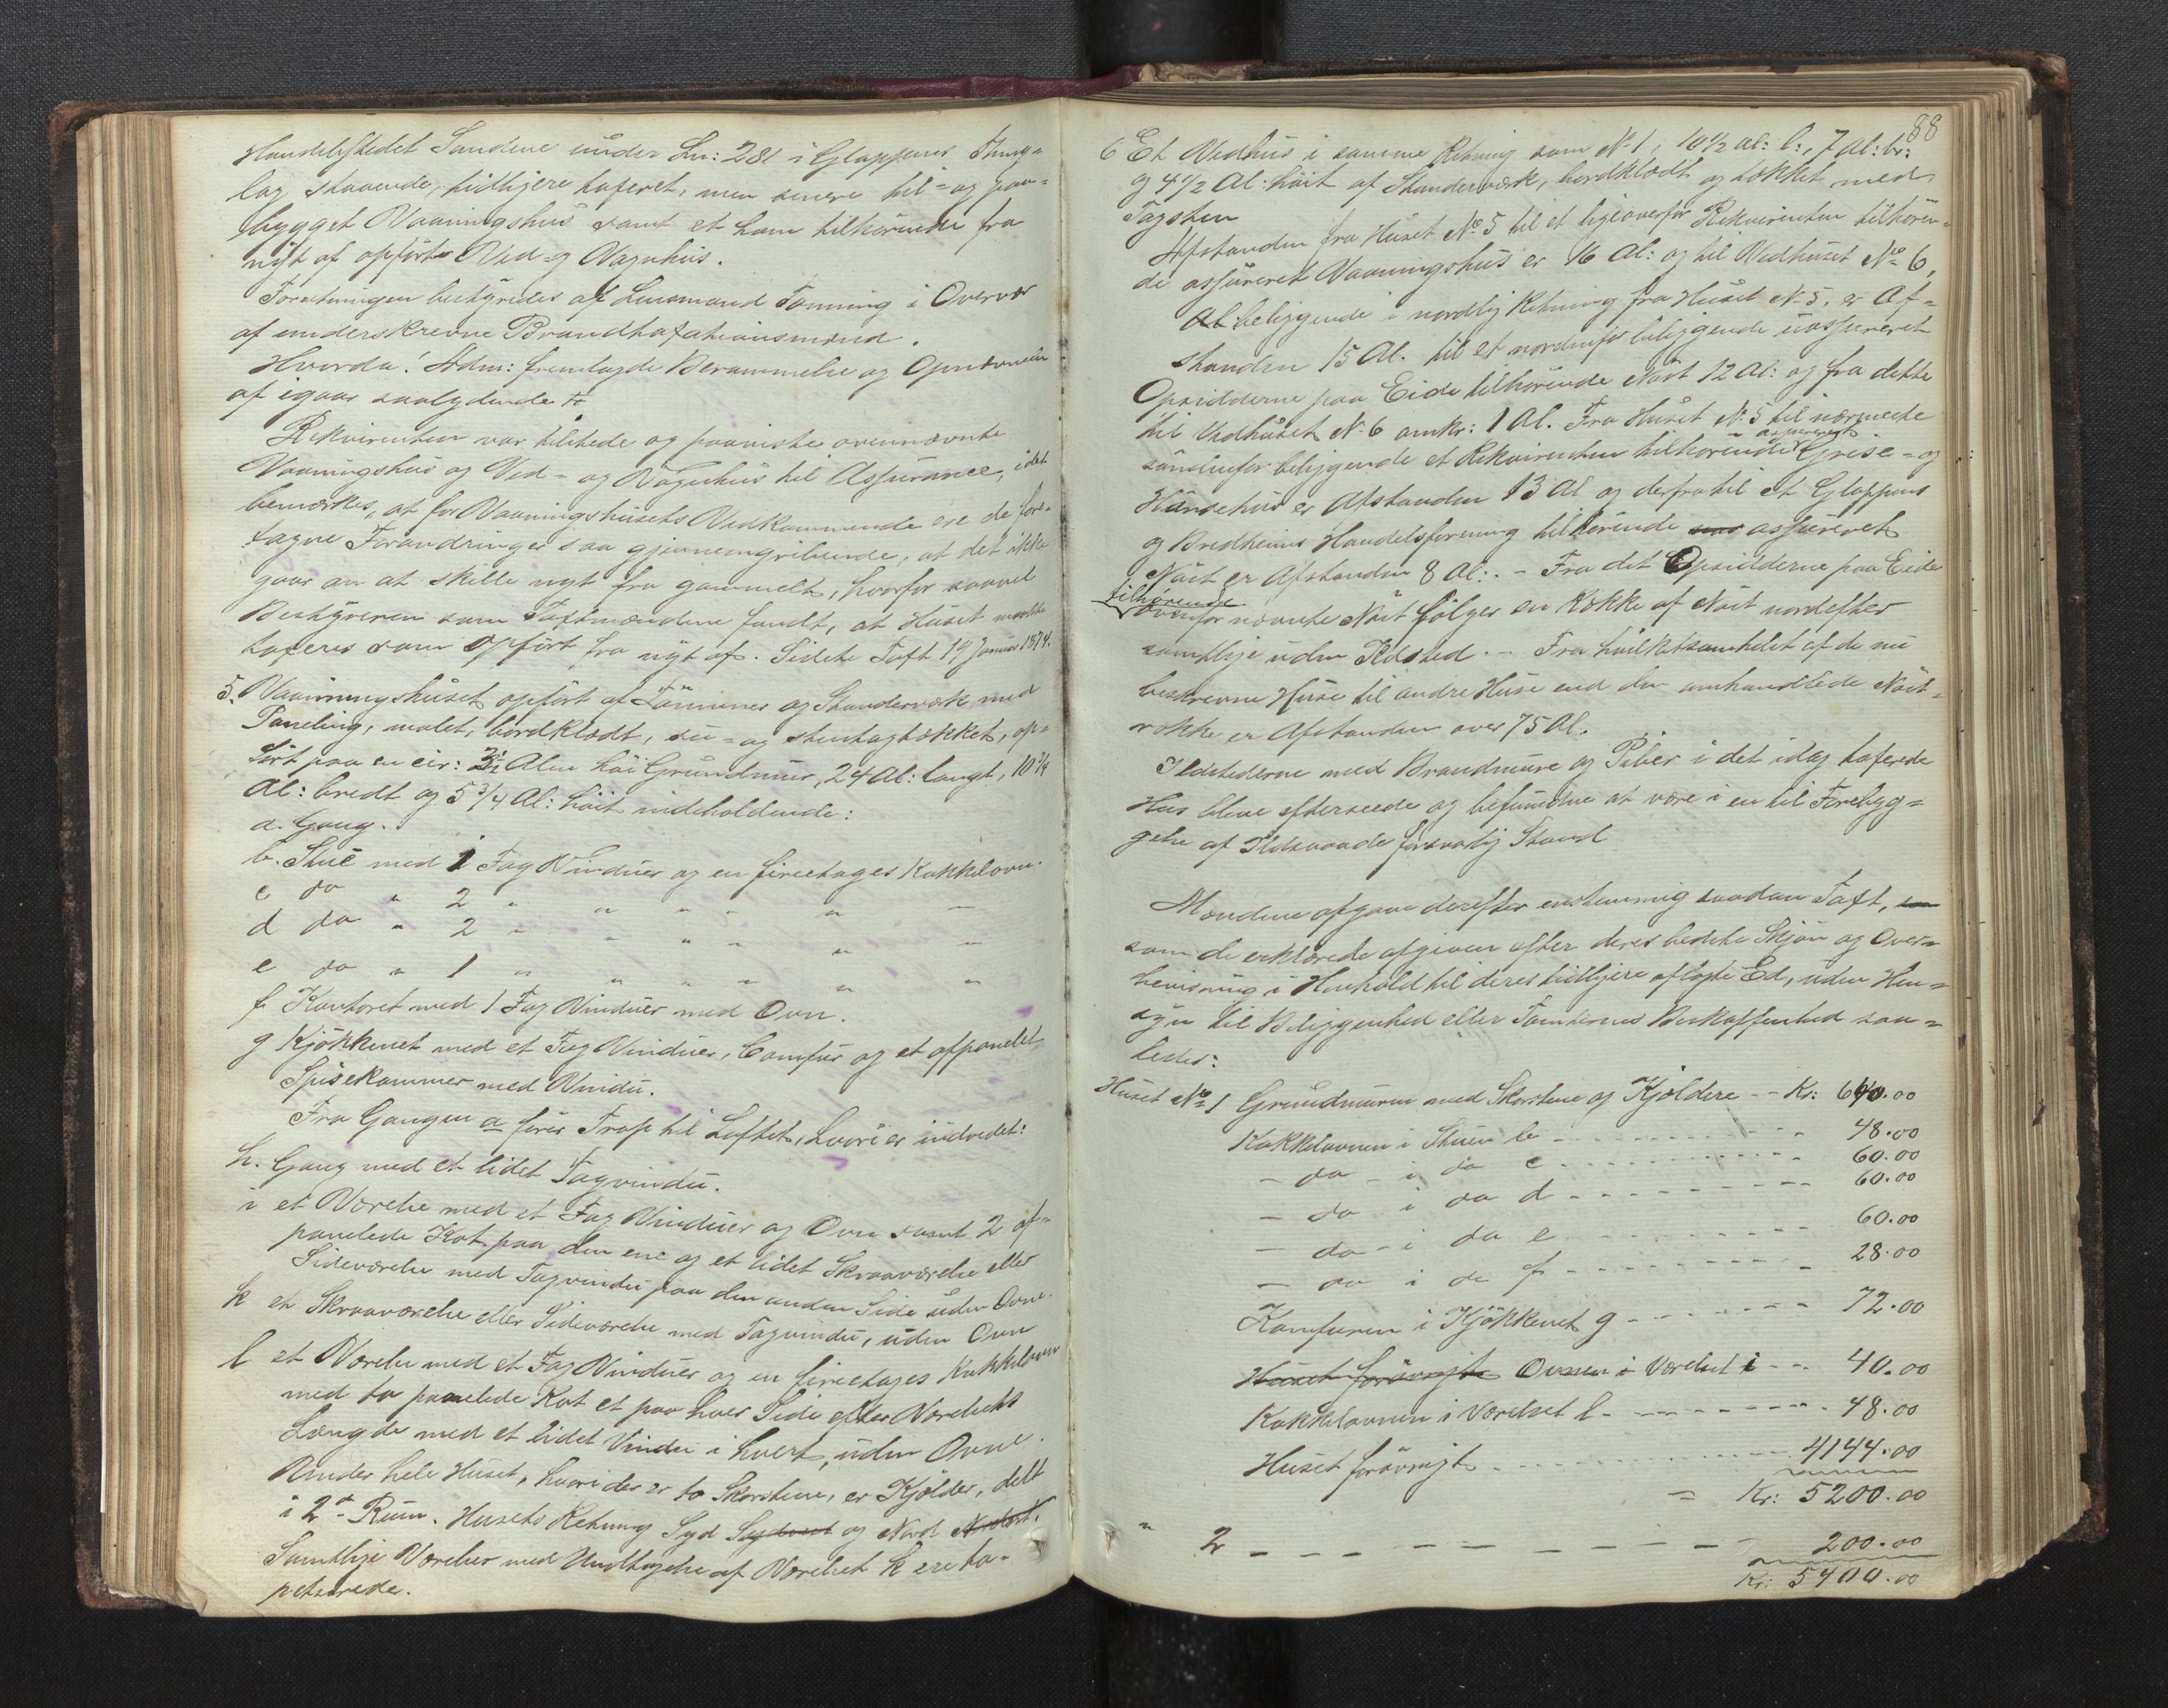 Handelsstedet Sandene under Ln: 281 i Gloppens Thing-
lag staaende, tidligere taxeret, men senere til- og paa-
bygget Vaaningshus samt et ham tilhørende fra
nyt af opført Ved- og Vognhus.
Forretningen bestyredes af Lensmand Tonning i Overvær
af underskrevne Brandtaxationsmænd.
Hvorda! Adm: fremlagde Berammelse og Opnævnelse
af igaar saalydende
Rekvirenten var tilstede og paaviste ovennævnte
Vaaningshus og Ved- og Vognhus til Assurance, idet
bemærkes, at for Vaaningshusets Vedkommende ere de fore-
tagne Forandringer saa gjennemgribende, at det ikke
gaar an at skille nyt fra gammelt, hvorfor saavel
Bestyreren som Taxtmændene fandt, at Huset maatte
taxeres som opført fra nyt af. Sidste Taxt 19 Januar 1874.
5. Vaaningshuset opført af Tømmer og Standerværk med
Paneling, malet, bordklædt, su- og stentagtækket, op-
ført paa en cir: 3½ Alen høi Grundmur, 24 Al: langt, 10¾
Al: bredt og 5¾ Al: høit indeholdende:
a. Gang.
b. Stue med 1 Fag Vinduer og en fireetages Kakkelovn.
c do " 2 " " " " " "
d do " 2 " " " " " "
e do " 1 " " " " " "
f Kontoret med 1 Fag Vinduer med Ovn.
g Kjøkkenet med et Fag Vinduer, Comfur og et afpanelet
Spisekammer med Vindu.
Fra Gangen a fører Trap til Loftet, hvori er indredet:
h. Gang med et lidet Tagvindu.
i et Værelse med et Fag Vinduer og Ovn samt 2 af-
panelede Kot paa den ene og et lidet Skraaværelse eller
Sideværelse med Tagvindu paa den anden Side uden Ovne.
k et Skraaværelse eller Sideværelse med Tagvindu, uden Ovn
l et Værelse med et Fag Vinduer og en fireetages Kakkelovn
med to panelede Kot et paa hver Side efter Værelsets
Længde med et lidet Vindu i hvert, uden Ovne.
Under hele Huset, hvori der er to Skorstene, er Kjælder, delt
i 2de Rum. Husets Retning Syd Sydvest og Nord Nordost.
Samtlige Værelser med Undtagelse af Værelset k ere ta-
petserede.
88
6 Et Vedhus i samme Retning som No 1, 10½ Al: l:, 7 Al: br:
og 4½ Al: høit af Standerværk, bordklædt og tækket med
Tagsten
Afstanden fra Huset No 5 til et ligeoverfor Rekvirenten tilhøren-
de assureret Vaaningshus er 16 Al: og til Vedhuset No 6,
Al beliggende i nordlig Retning fra Huset No 5, er Af-
standen 15 Al. til et nordenfor beliggende uassureret
Opsidderne paa Eide tilhørende Nøst 12 Al: og fra dette
til Vedhuset No 6 omkr: 1 Al. Fra Huset No 5 til nærmeste
søndenfor beliggende et Rekvirenten tilhørende assureret Grise- og
Hønsehus er Afstanden 13 Al og derfra til et Gloppens
og Bredheims Handelsforening tilhørende assureret
Nøst er Afstanden 8 Al:. - Fra det Opsidderne paa Eide
tilhørende
ovenfor nævnte Nøst følger en Række af Nøst nordefter
samtlige uden Ildsted. - Fra hvilketsomhelst af de nu
beskrevne Huse til andre Huse end den omhandlede Nøst-
række er Afstanden over 75 Al.
Ildstederne med Brandmure og Piber i det idag taxerede
Hus bleve efterseede og befundne at være i en til Forebyg-
gelse af Ildsvaade forsvarlig Stand
Mændene afgave derefter enstemmig saadan Taxt,
som de erklærede afgiven efter deres bedste Skjøn og Over-
bevisning i Henhold til deres tidligere aflagte Ed, uden Hen-
syn til Beliggenhed eller Tomternes Beskaffenhed saa-
ledes:
Huset No 1 Grundmuren med Skorstene og Kjældere - - Kr: 640.00
Kakkelovnen i Stuen b - - - - 48.00
- do - i do c - - - - 60.00
- do i do d - - - - 60.00
- do - i do e - - - - 60.00
- do i do f - - - - 28.00
Komfuren i Kjøkkenet g - - - - 72.00
Huset forøvrigt Ovnen i Værelset i - - 40.00
Kakkelovnen i Værelset l - - - - 48.00
Huset forøvrigt - - - - 4144.00
= Kr: 5200.00
" 2 - - - - - - - - 200.00
Kr: 5400.00